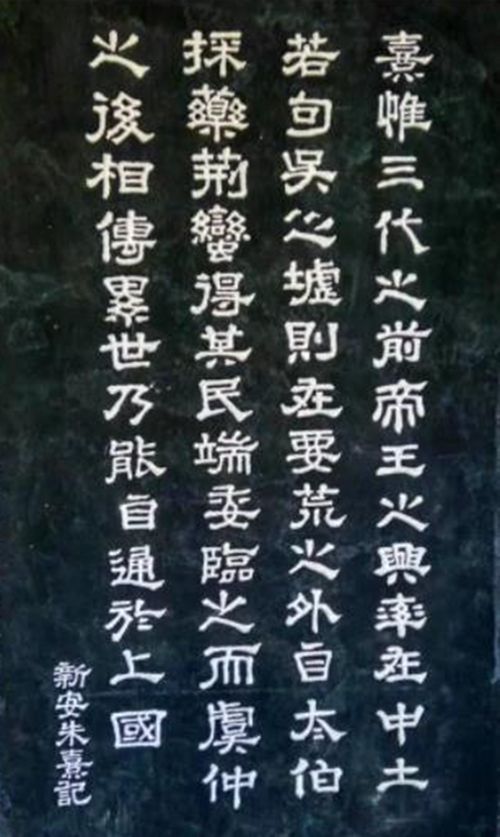 熹惟三代之前帝王之興率在中土
若句吳之墟則在要荒之外自太伯
採藥荆蠻得其民端委臨之而虞仲
之後相傳累世乃能自通於上國
新安朱熹記